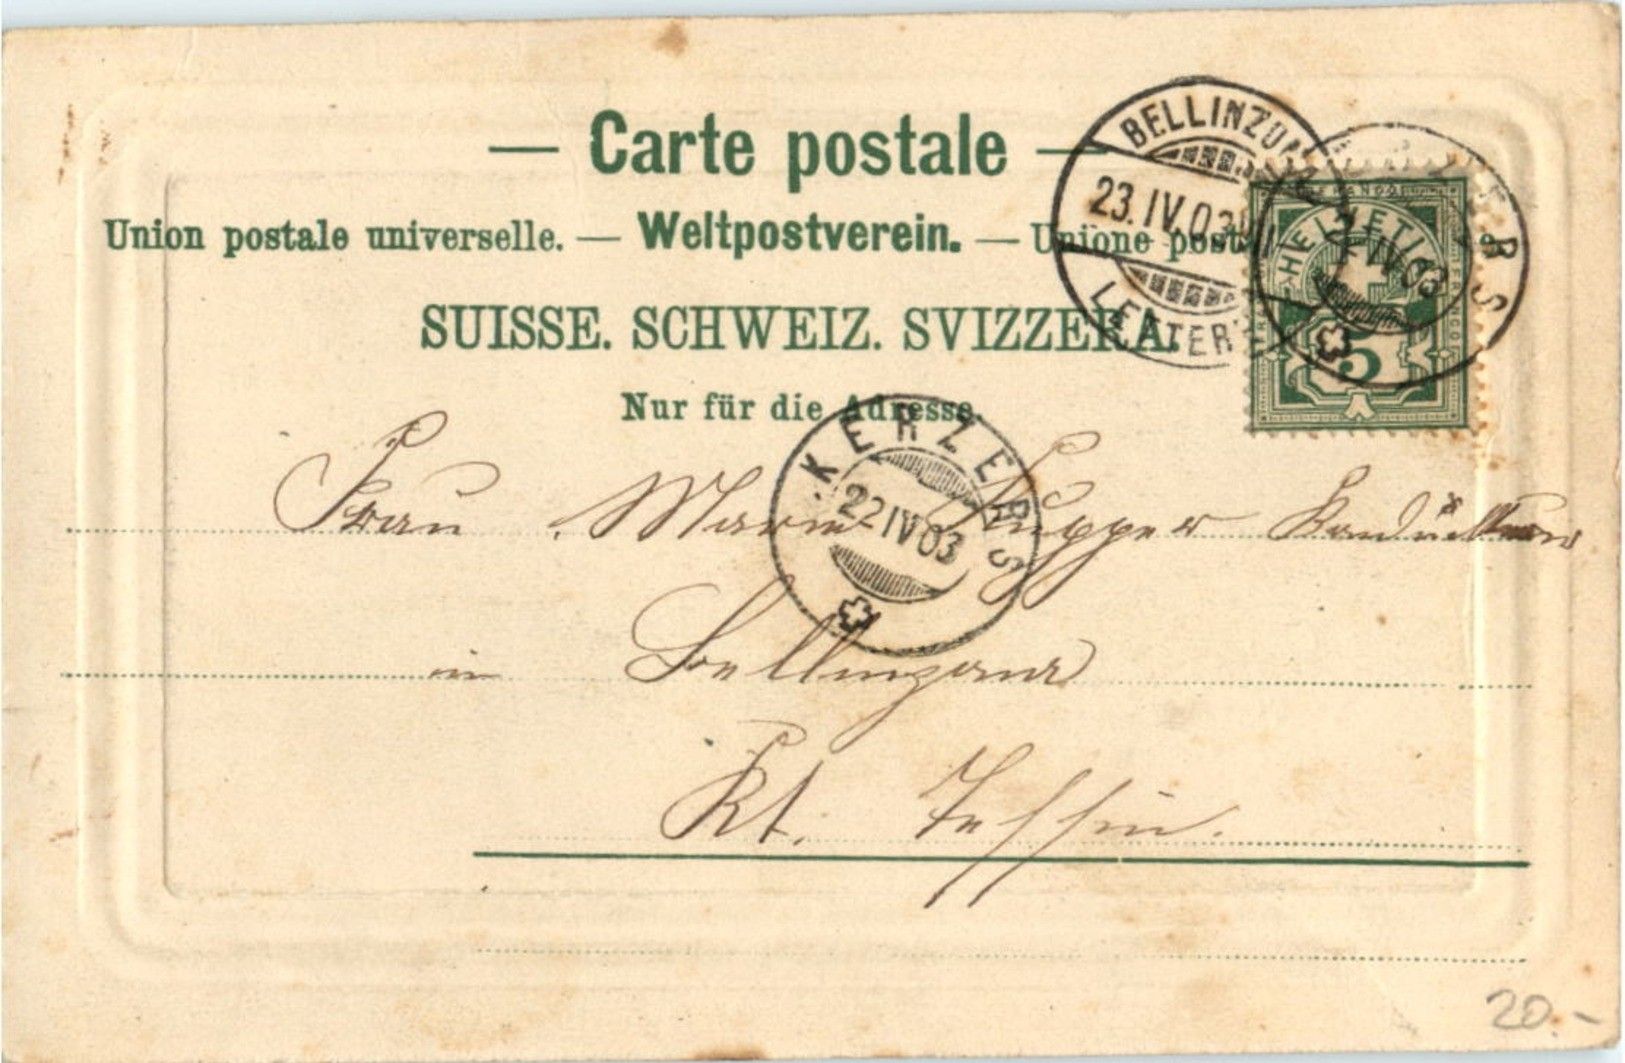 — Carte postale —
Union postale universelle. — Weltpostverein. — Unione
SUISSE. SCHWEIZ. SVIZZERA.
Nur für die Adresse.
BELLINZONA
23.IV.03
HELVETIA
5
KERZERS
22 IV 03
KERZERS
22 IV 03
Frau Marie Kupper
in Bellinzona
Kt. Tessin.
20.-